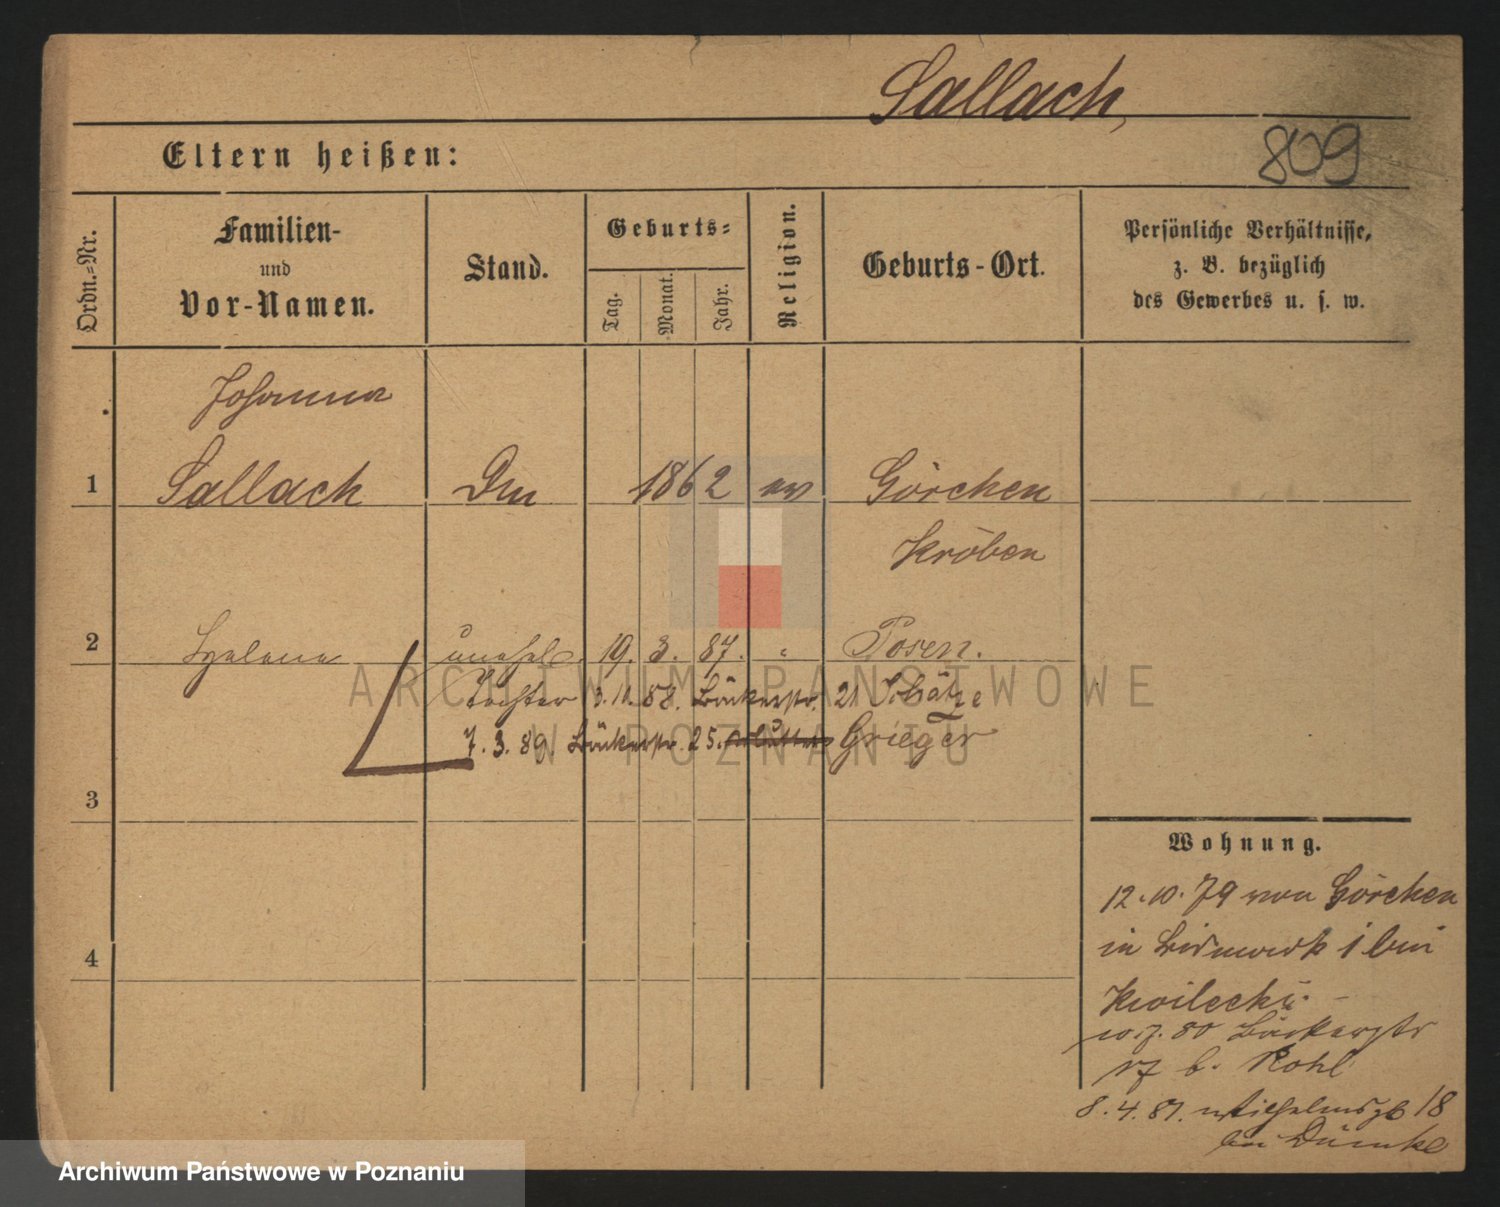 Sallach,
Eltern heißen:
809
Ordn.=Nr.
Familien-
und
Vor-Namen.
Stand.
Geburts=
Tag.
Monat.
Jahr.
Religion.
Geburts-Ort.
Persönliche Verhältnisse,
z. B. bezüglich
des Gewerbes u. s. w.
Johanna
1 Sallach 1862 ev Görchen
Kröben
2 unehel. 19. 3. 87. " Posen.
Tochter 3.10.88. Bäckerstr. 21 Schätze
7. 3. 89 Bäckerstr. 25. Grieger
3
4
Wohnung.
12.10.79 von Görchen
in Bismarck 1 bei
Kwilecki.
80 Bäckerstr
17 b. Kohl
8. 4. 87. Wilhelmspl 18
bei Dümke
ARCHIWUM PAŃSTWOWE
W POZNANIU
Archiwum Państwowe w Poznaniu